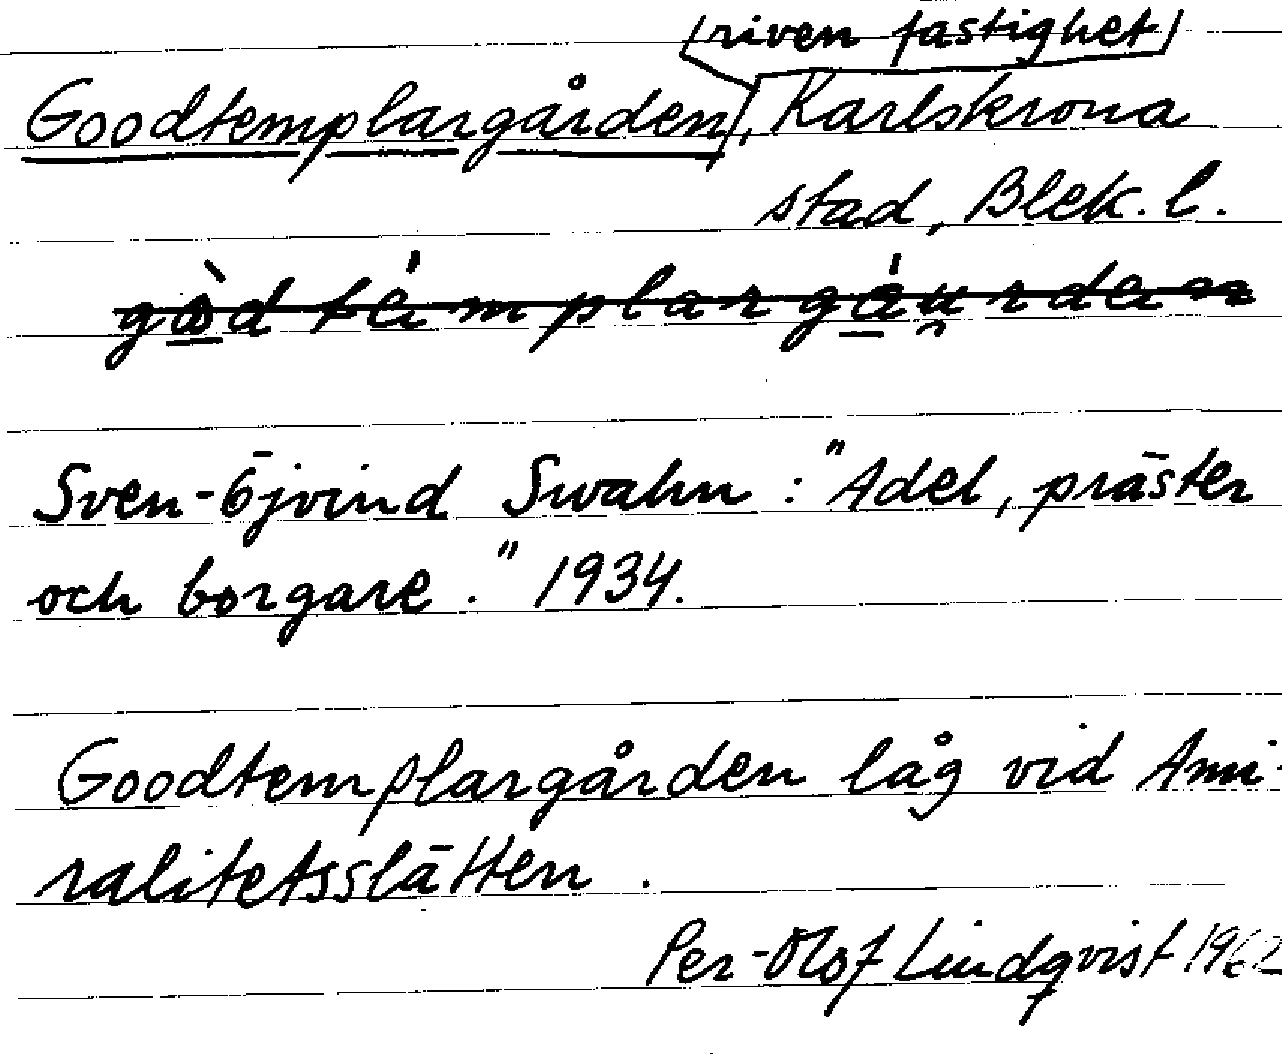 (riven fastighet)
Goodtemplargården, Karlskrona
stad, Blek. l.
Sven-Öjvind Swahn : "Adel, präster
och borgare." 1934.
Goodtemplargården låg vid Ami-
ralitetsslätten .
Per-Olof Lindqvist 1962